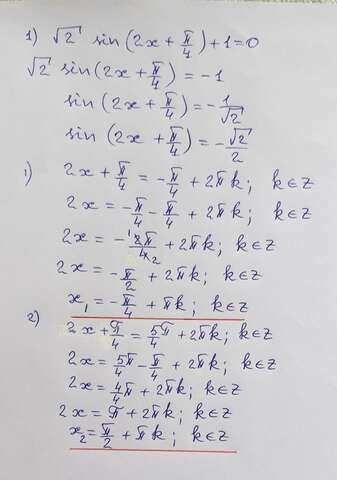 1) √2 sin(2x + π/4) + 1 = 0
√2 sin(2x + π/4) = -1
sin(2x + π/4) = -1/√2
sin(2x + π/4) = -√2/2
1) 2x + π/4 = -π/4 + 2πk; k∈z
2x = -π/4 - π/4 + 2πk; k∈z
2x = -¹2π/4₂ + 2πk; k∈z
2x = -π/2 + 2πk; k∈z
x₁ = -π/4 + πk; k∈z
2) 2x + π/4 = 5π/4 + 2πk; k∈z
2x = 5π/4 - π/4 + 2πk; k∈z
2x = 4π/4 + 2πk; k∈z
2x = π + 2πk; k∈z
x₂ = π/2 + πk; k∈z